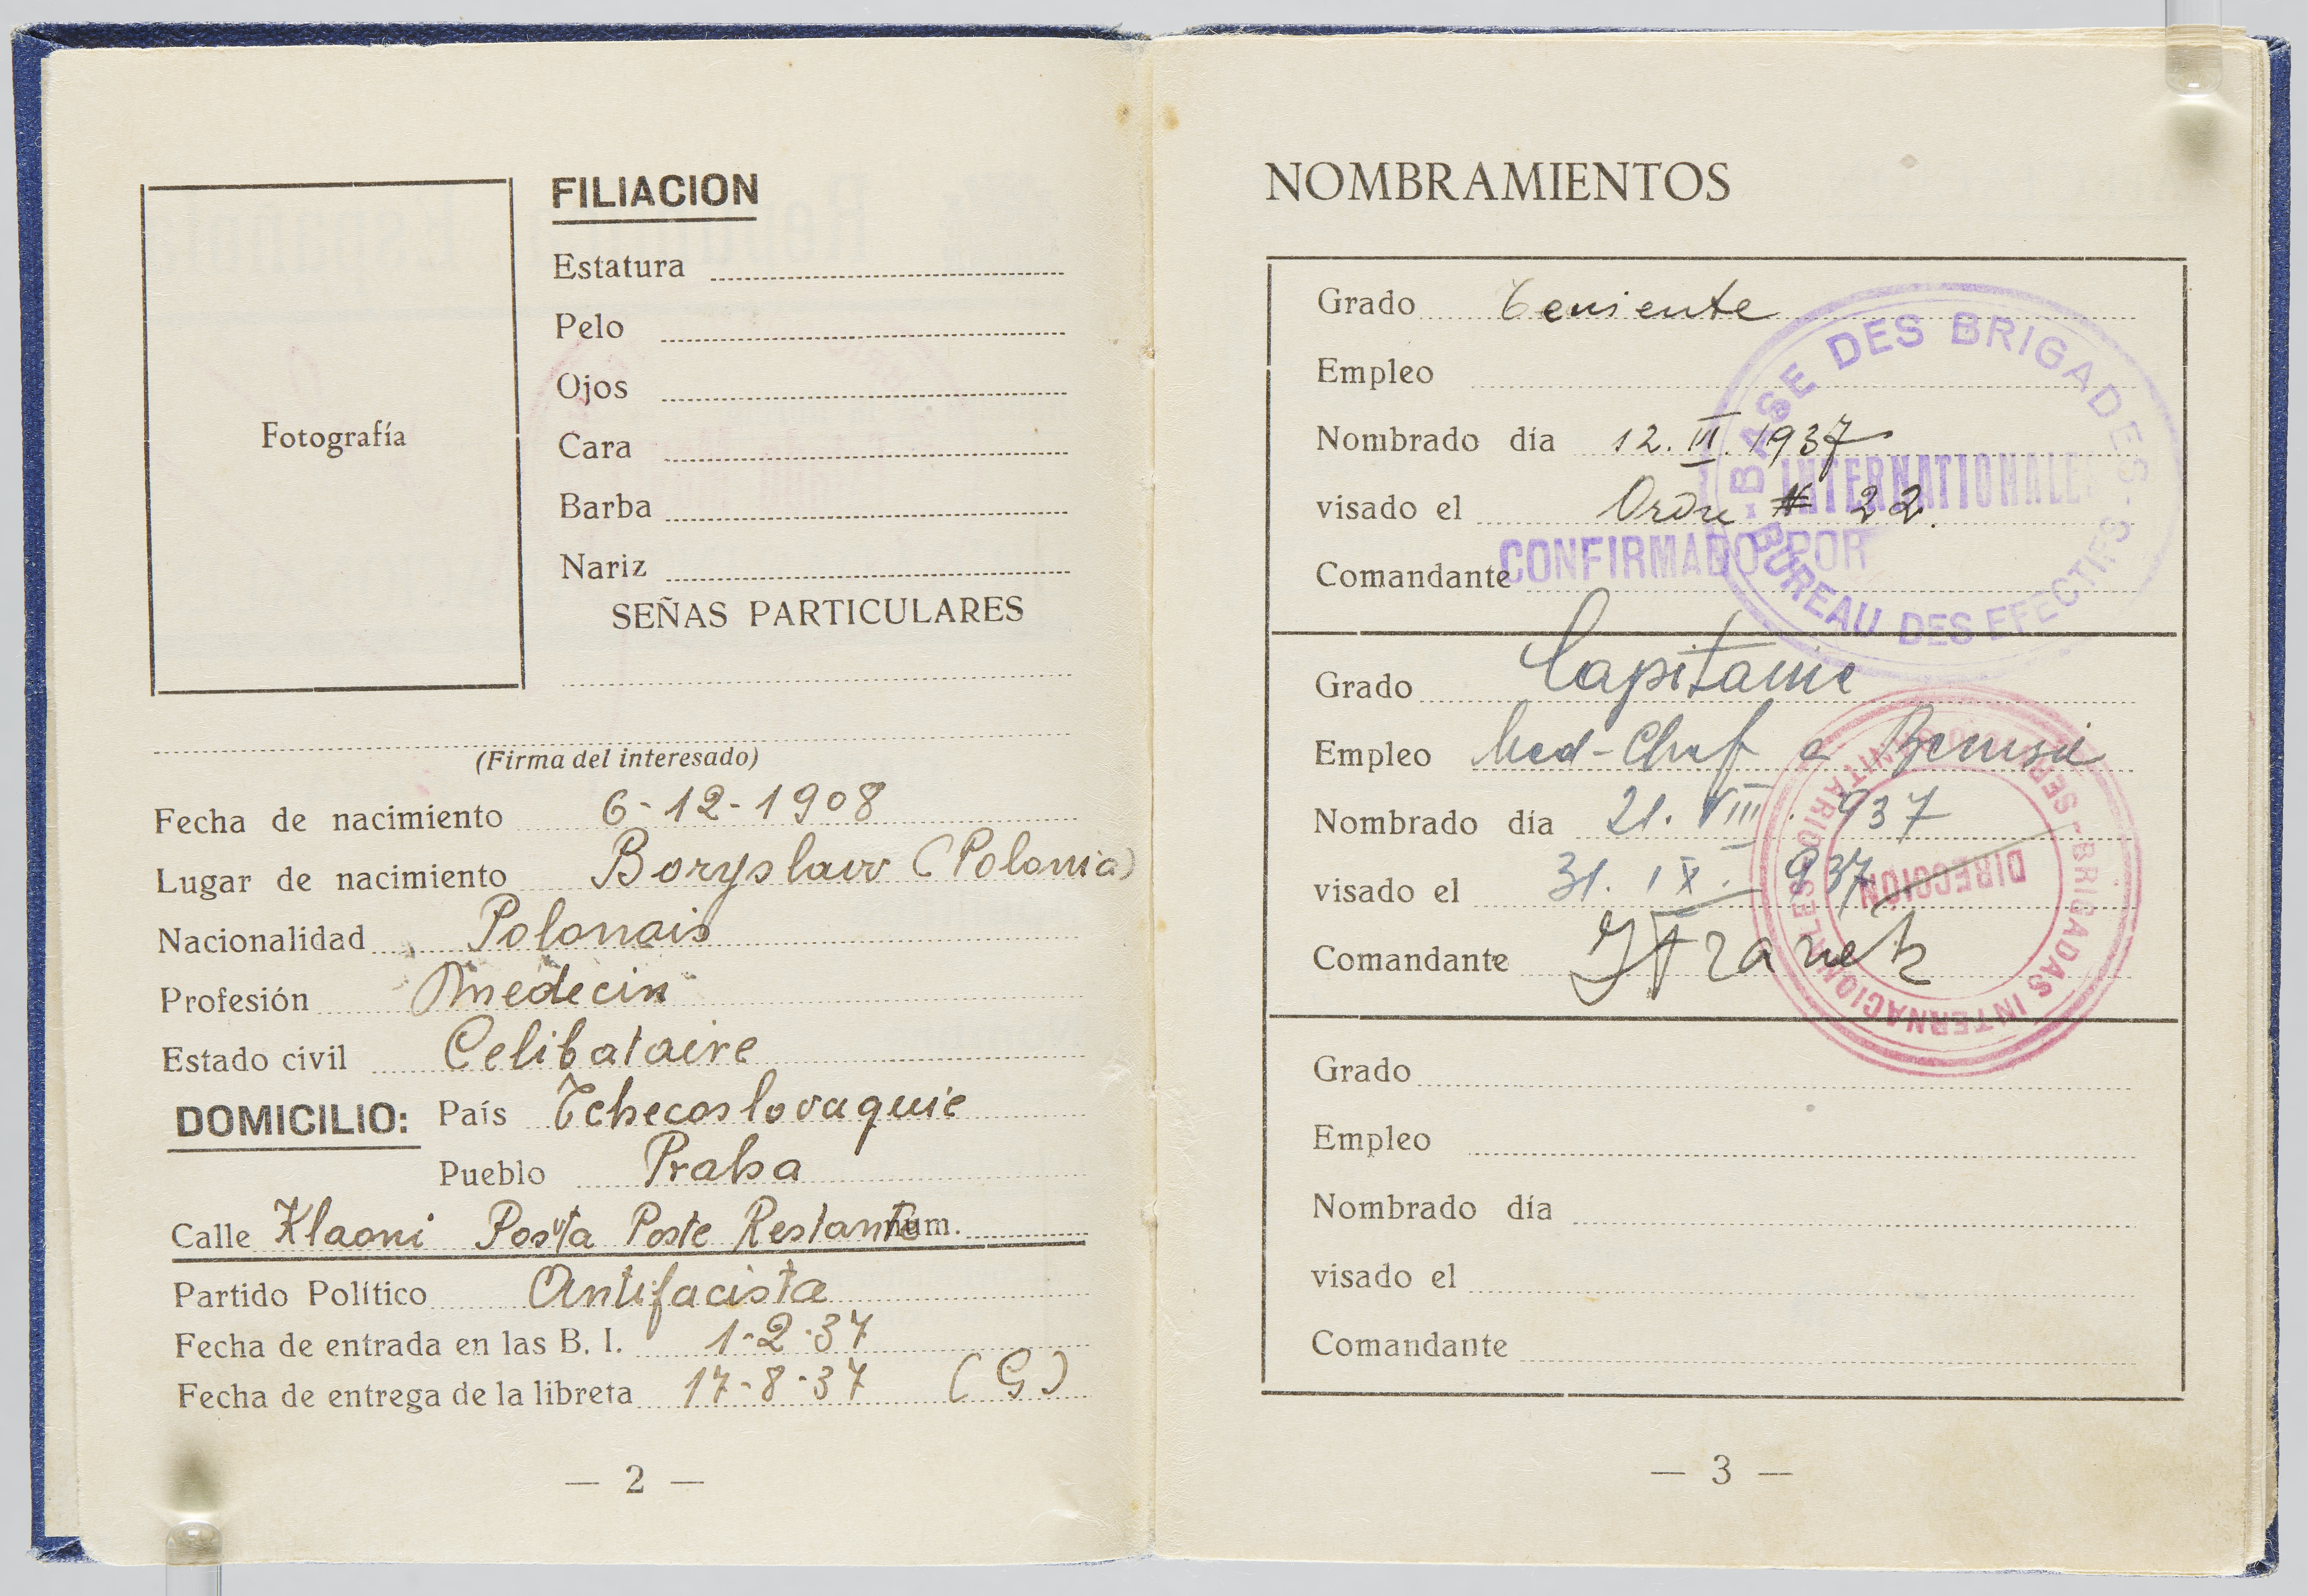 FILIACION
Fotografía
Estatura
Pelo
Ojos
Cara
Barba
Nariz
SEÑAS PARTICULARES
(Firma del interesado)
Fecha de nacimiento 6-12-1908
Lugar de nacimiento Boryslaw (Polonia)
Nacionalidad Polonais
Profesión medecin
Estado civil Celibataire
DOMICILIO: País Tchecoslovaquie
Pueblo Praha
Calle Posta Poste Restante num.
Partido Político Antifacista
Fecha de entrada en las B. I. 1-2-37
Fecha de entrega de la libreta 17-8-37 (G)
— 2 —
NOMBRAMIENTOS
Grado Teniente
Empleo
Nombrado día 12. III. 1937
visado el Ordre # 22.
Comandante CONFIRMADO POR
BASE DES BRIGADES
INTERNATIONALES
BUREAU DES EFECTIFS
Grado Capitaine
Empleo Med-Chef a
Nombrado día 21. VIII. 937
visado el 31. IX. 937
Comandante
BRIGADAS INTERNACIONALES
SERVICIO SANITARIO
DIRECCIÓN
Grado
Empleo
Nombrado día
visado el
Comandante
— 3 —